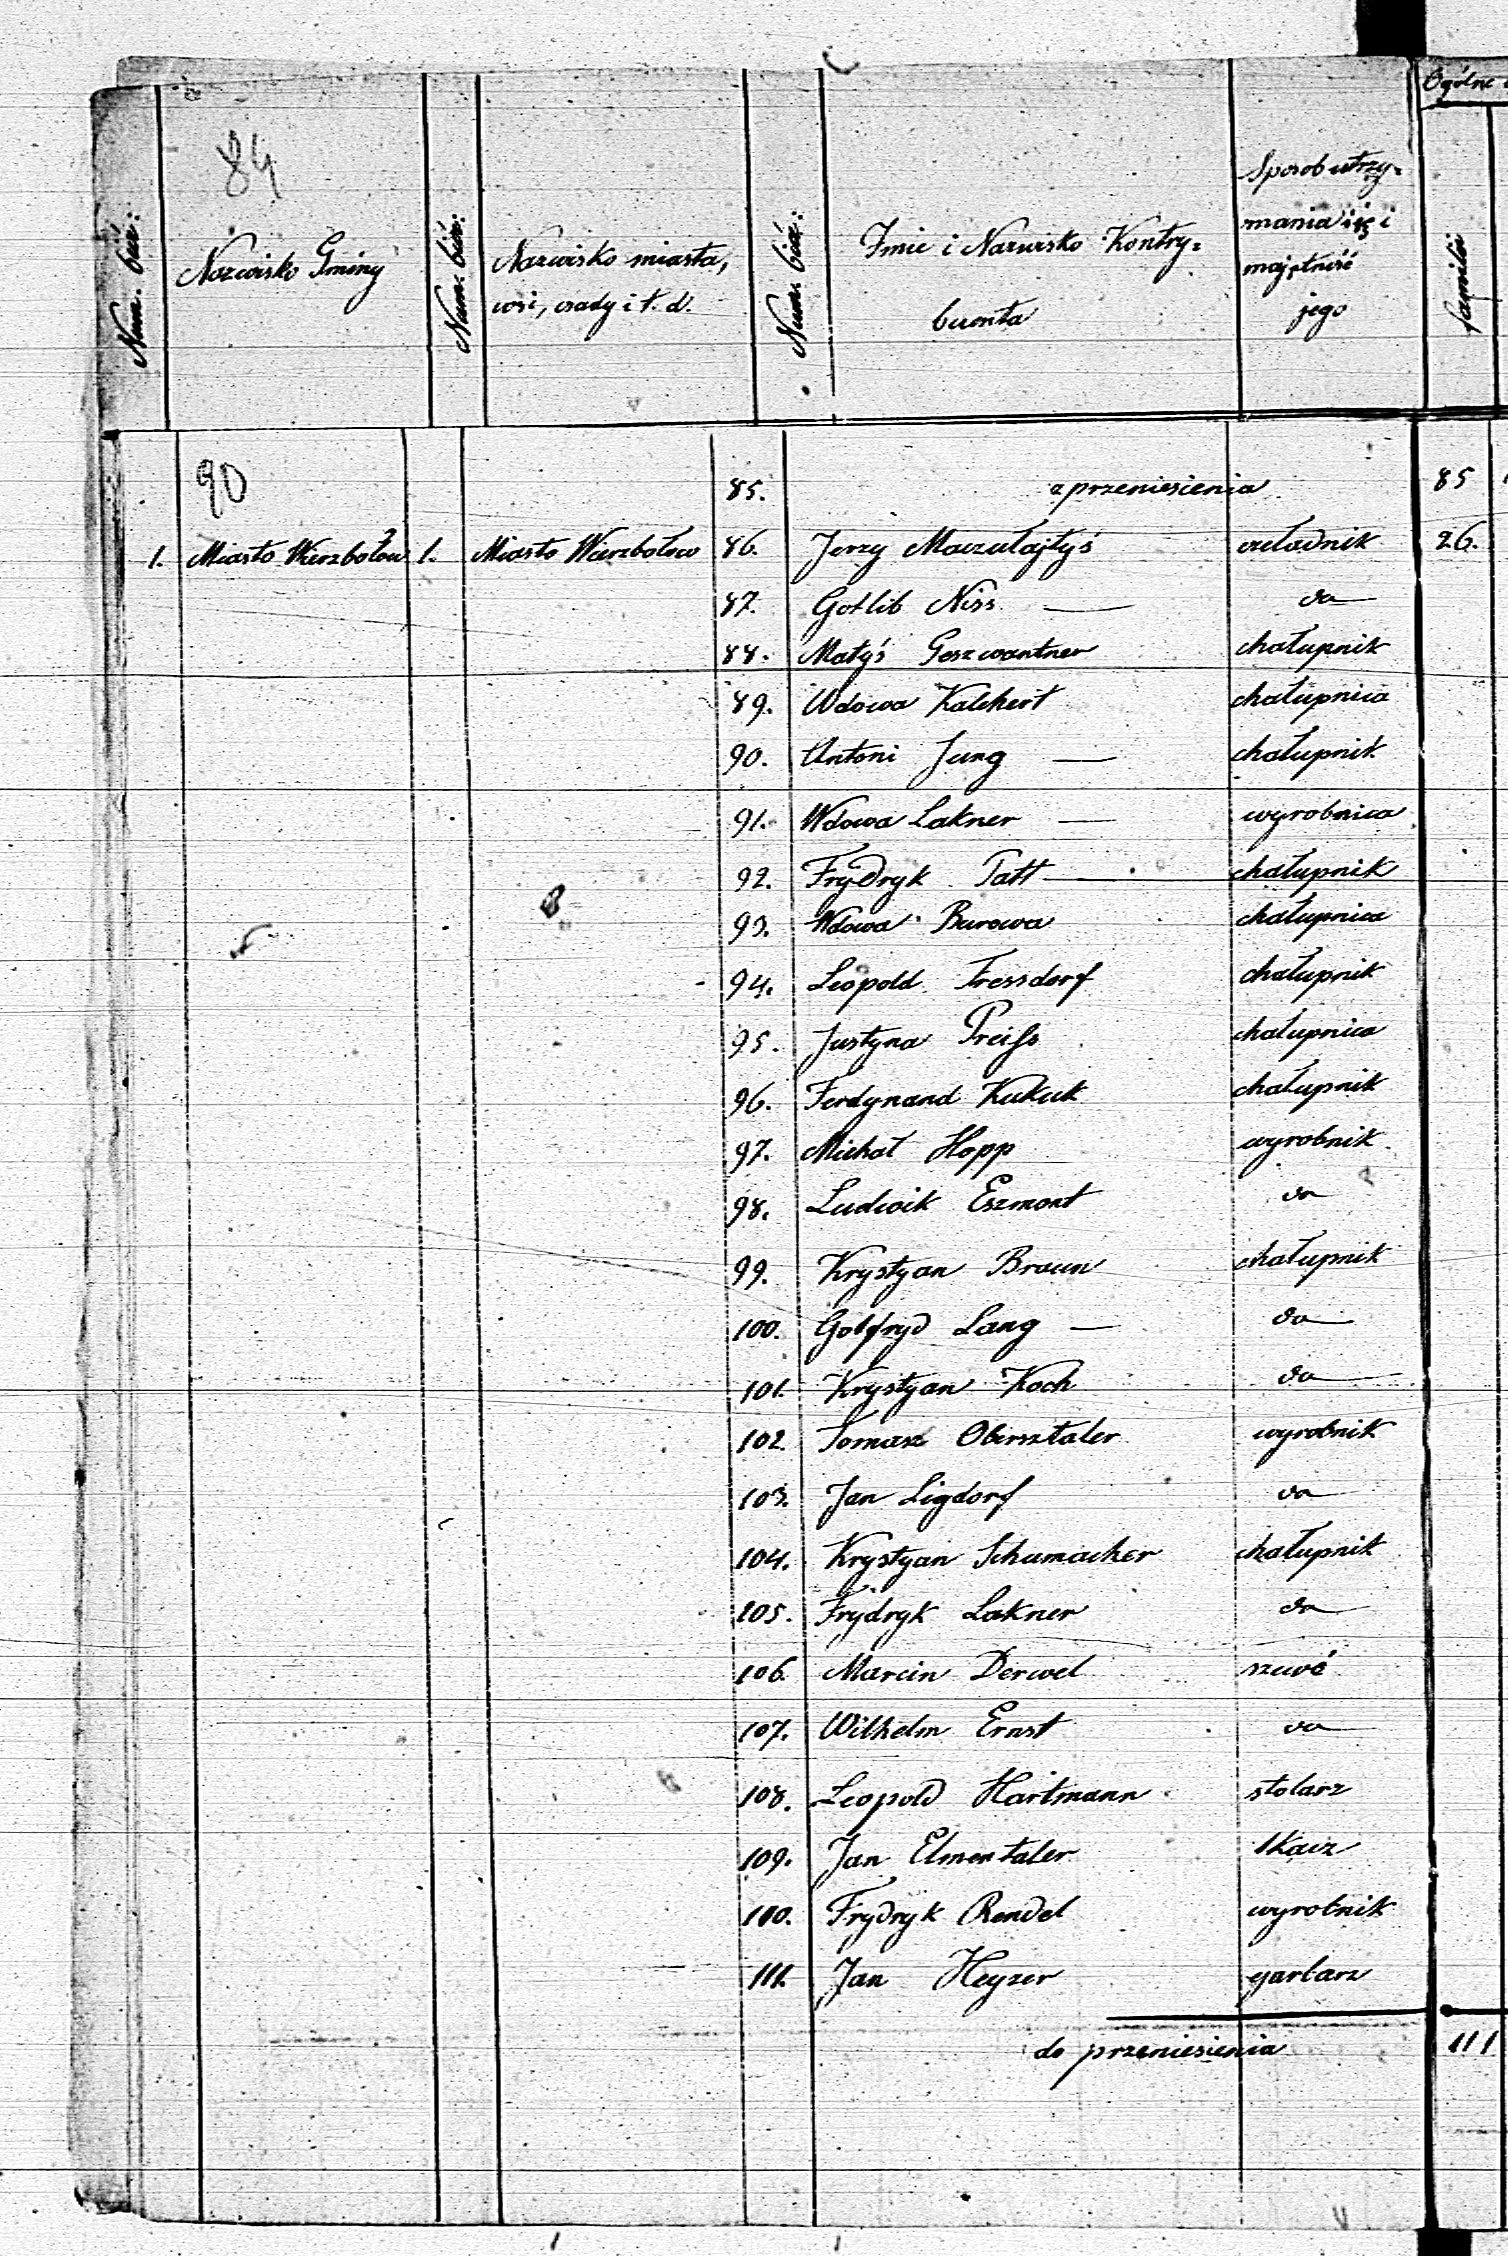 Ogólne
84
Num. bież:
Nazwisko Gminy
Num: bież:
Nazwisko miasta,
wsi, osady i t. d.
Num: bież:
Imie i Nazwisko Kontry=
buenta
Sposob utrzy=
mania się i
majętność
jego
familii
90
85. z przeniesienia 85
1. Miasto Wierzbołow 1. Miasto Wierzbołow 86. Jerzy Maczulajtyś czeladnik 26.
87. Gotlib Niss — do
88. Matyś Geszwantner chałupnik
89. Wdowa Kalchert chałupnica
90. Antoni Jung — chałupnik
91. Wdowa Lakner — wyrobnica
92. Frydryk Patt — chałupnik
93. Wdowa Burowa chałupnica
94. Leopold Fressdorf chałupnik
95. Justyna Preiss chałupnica
96. Ferdynand Kukuk chałupnik
97. Michał Hopp wyrobnik
98. Ludwik Eszmont do
99. Krystyan Braun chałupnik
100. Gotfryd Lang — do
101. Krystyan Koch do
102. Tomasz Obersztaler wyrobnik
103. Jan Ligdorf do
104. Krystyan Schumacher chałupnik
105. Frydryk Lakner do
106. Marcin Derwel szewc
107. Wilhelm Ernst do
108. Leopold Hartmann stolarz
109. Jan Elmentaler tkacz
110. Frydryk Rendel wyrobnik
111. Jan Heyzer garbarz
do przeniesienia 111